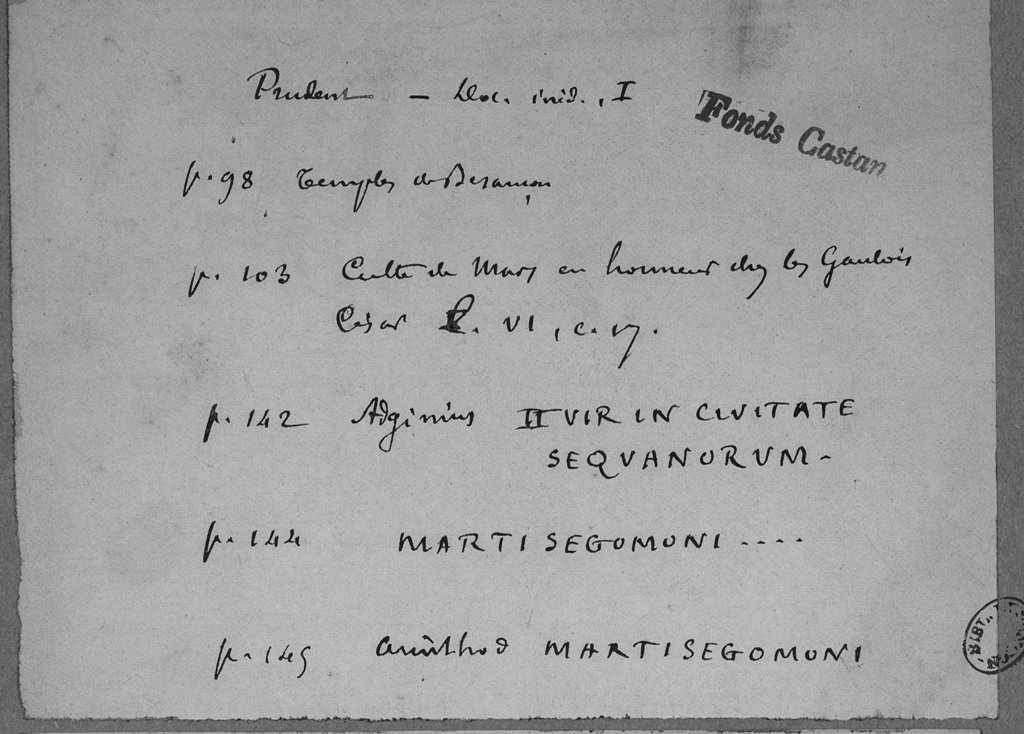 Prudent — Doc. inéd., I
Fonds Castan
p. 98 Temples de Besançon
p. 103 Culte de Mars en honneur chez les Gaulois
César l. VI, c. 17.
p. 142 Adginius II VIR IN CIVITATE
SEQVANORVM -
p. 144 MARTI SEGOMONI ....
p. 145 Arinthod MARTI SEGOMONI
BIBL